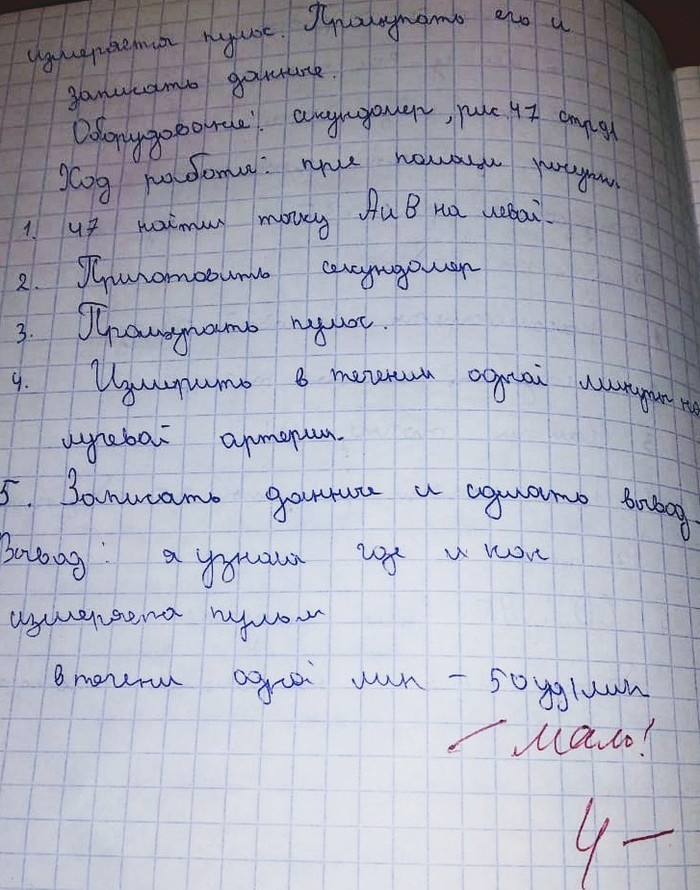 измеряется пульс. Прощупать его и
записать данные.
Оборудование: секундомер, рис 47 стр 91
Ход работы: при помощи рисунк.
1. 47 найти точку А и В на левой.
2. Приготовить секундомер
3. Прощупать пульс.
4. Измерить в течении одной минуты на
лучевой артерии.
5. Записать данные и сделать вывод
Вывод: я узнал где и как
измеряета пульм
в течени одной мин - 50 уд/мин
мало!
4-